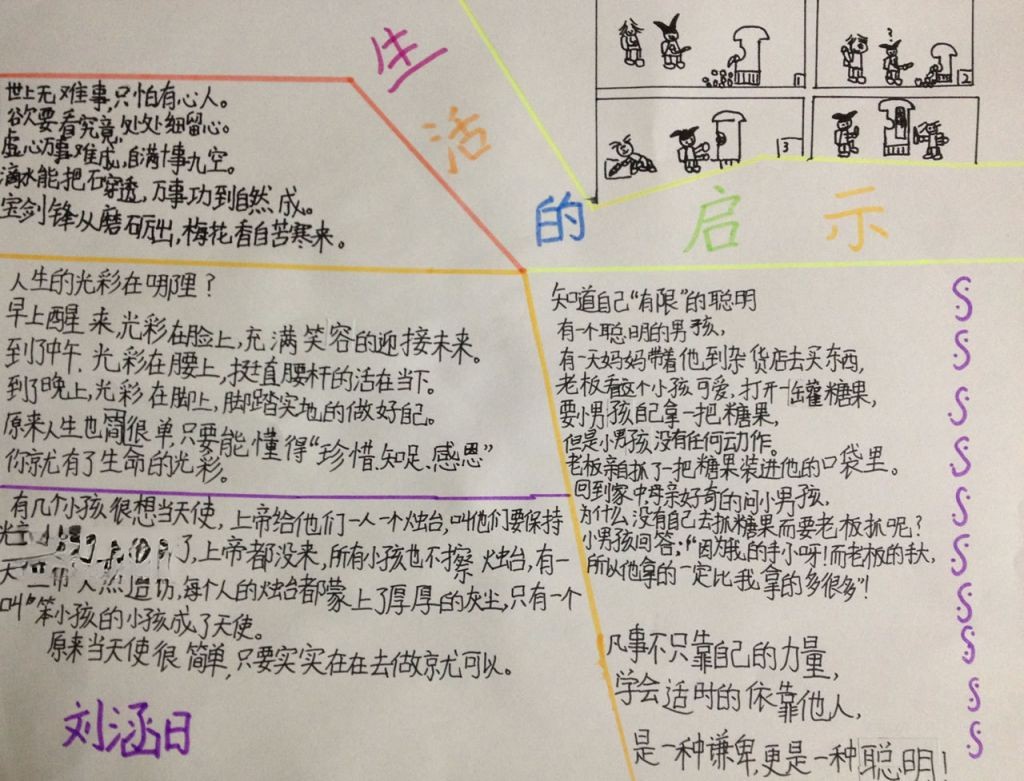 生活的启示
1
2
3
世上无难事,只怕有心人。
欲要看究竟,处处细留心。
虚心万事难成,自满十事九空。
滴水能把石穿透,万事功到自然成。
宝剑锋从磨砺出,梅花香自苦寒来。
人生的光彩在哪理?
早上醒来,光彩在脸上,充满笑容的迎接未来。
到了仲午,光彩在腰上,挺直腰杆的活在当下。
到了晚上,光彩在脚上,脚踏实地的做好自己。
原来人生也简很单,只要能懂得“珍惜、知足、感恩”
你就有了生命的光彩。
有几个小孩很想当天使,上帝给他们一人一个烛台,叫他们要保持
光 了,上帝都没来,所有小孩也不擦烛台,有一
天上帝 然造访,每个人的烛台都蒙上了厚厚的灰尘,只有一个
叫“笨小孩的小孩成了天使。
原来当天使很简单,只要实实在在去做就可以。
刘涵日
知道自己“有限”的聪明
有一个聪明的男孩,
有一天妈妈带着他到杂货店去买东西,
老板看这个小孩可爱,打开一缶罐糖果,
要小男孩自己拿一把糖果,
但是小男孩没有任何动作。
老板亲自抓了一把糖果装进他的口袋里。
回到家中母亲好奇的问小男孩,
为什么没有自己去抓糖果而要老板抓呢?
小男孩回答:“因为我的手小呀!而老板的手大,
所以他拿的一定比我拿的多很多”!
凡事不只靠自己的力量,
学会适时的依靠他人,
是一种谦卑,更是一种聪明!